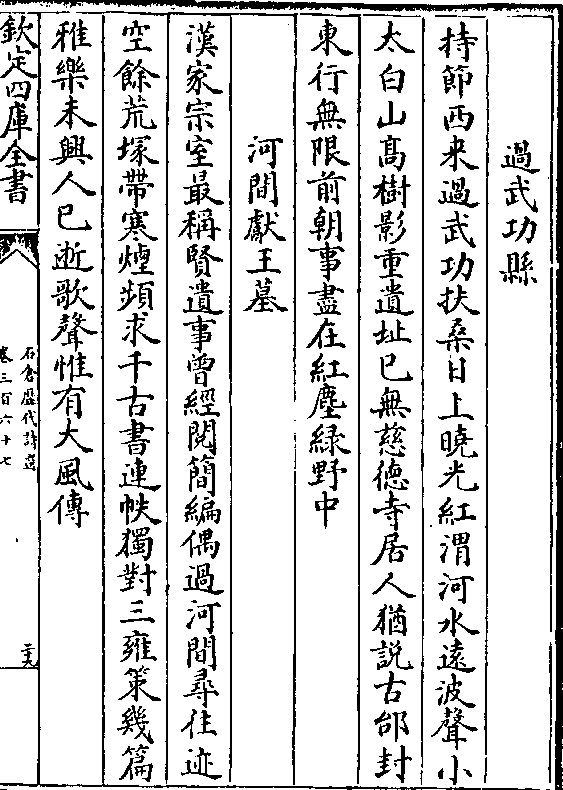 過武功縣
持節西来過武功扶桑日上曉光紅渭河水逺波聲小
太白山髙樹影重遺址已無慈德寺居人猶説古邰封
東行無限前朝事盡在紅塵緑野中
河間獻王墓
漢家宗室最稱賢遺事曾經閲簡編偶過河間尋往迹
空餘荒塚帶寒煙頻求千古書連帙獨對三雍策幾篇
雅樂未興人已逝歌聲惟有大風傳
欽定四庫全書
石倉歴代詩選
卷三百六十七